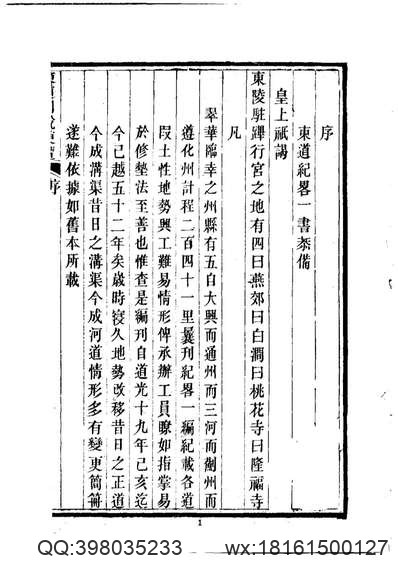 序
東道紀畧一書恭備
皇上祇謁
東陵駐蹕行宮之地有四曰燕郊曰白澗曰桃花寺曰隆福寺
凡
翠華臨幸之州縣有五自大興而通州而三河而薊州而
遵化州計程二百四十一里曩刊紀畧一編紀載各道
段土性地勢興工難易情形俾承辦工員瞭如指掌易
於修墊法至善也惟查是編刊自道光十九年己亥迄
今已越五十二年矣歲時寖久地勢改移昔日之正道
今成溝渠昔日之溝渠今成河道情形多有變更簡冊
遂難依據如舊本所載
序
1
QQ:398035233 wx:18161500127